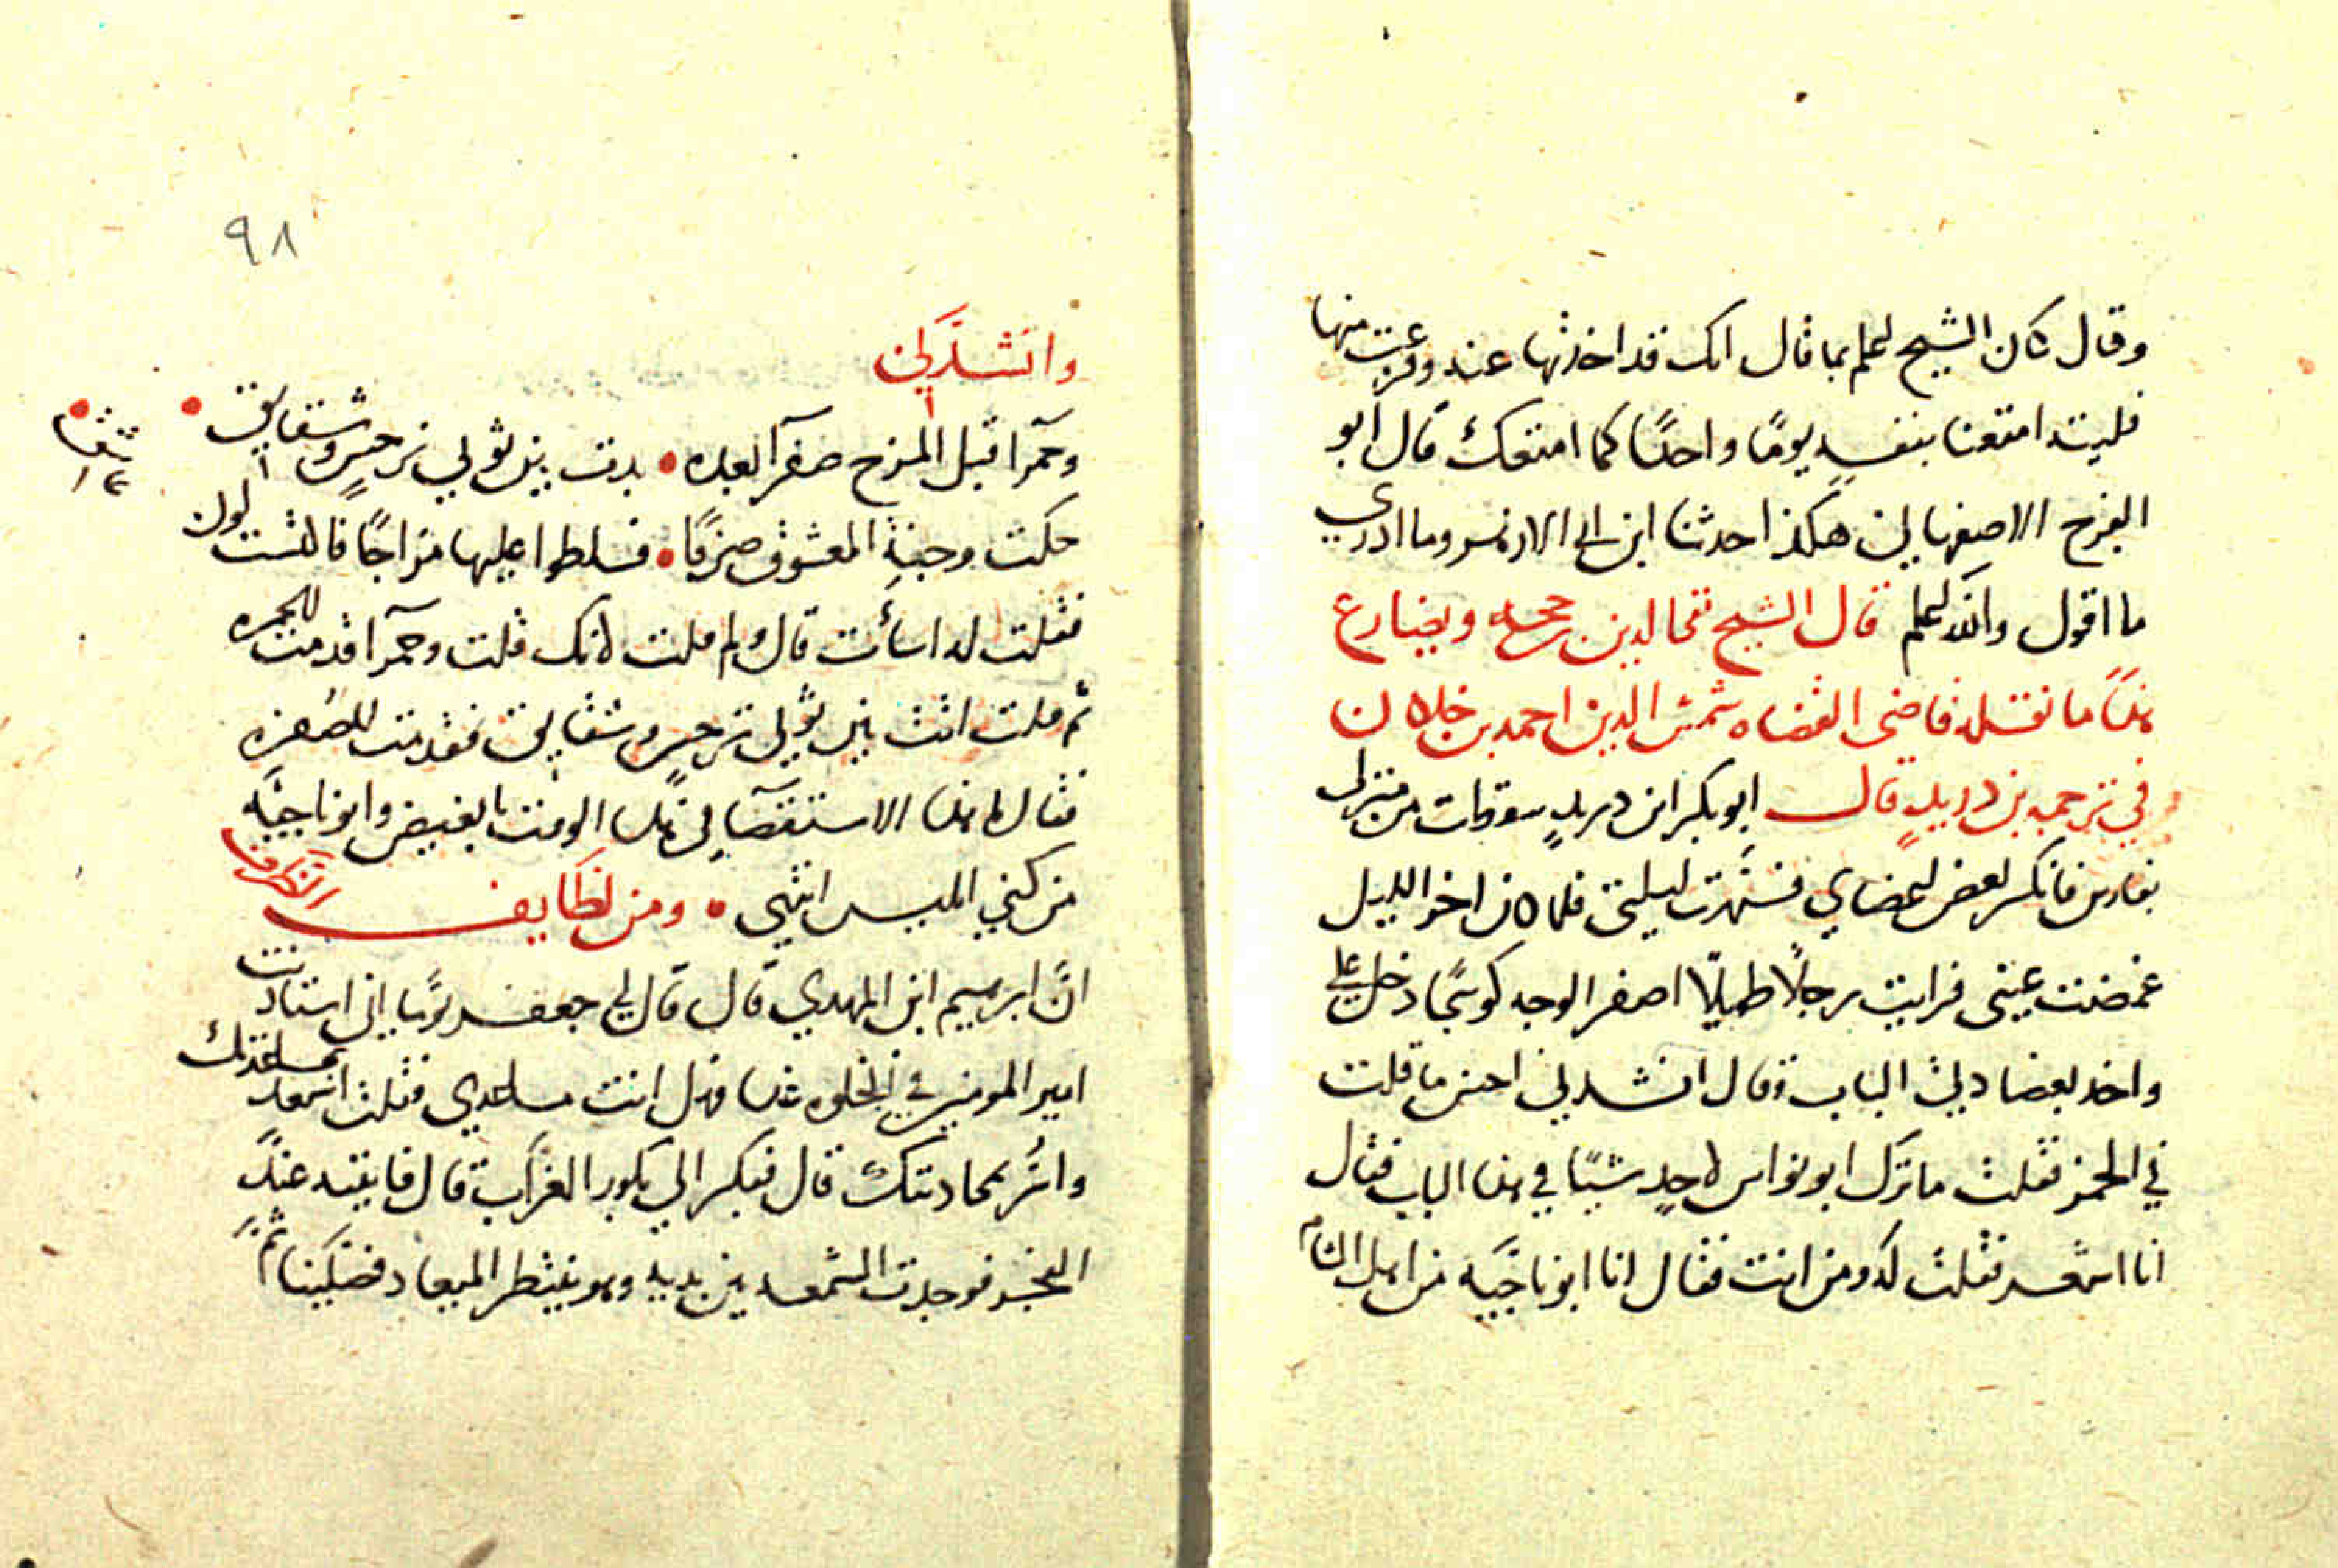 وقال كان الشيخ لعلم بما قال انك قد اخذتها عنه وفرغت منها
فليته امتعنا بنفسه يومًا واحدًا كما امتعك قال ابو
الفرج الاصفهاني هكذا حدثنا ابن ابي الازهر وما ادري
ما اقول والله اعلم قال الشيخ تقي الدين بن حجه ويضارع
هذا ما نقله قاضي القضاه شمس الدين احمد بن خلكان
في ترجمه بن دريد قال ابو بكر ابن دريد سقطت من منزلي
بفارس فانكسر بعض اعضاي فسهرت ليلتي فلما كان اخر الليل
غمضت عيني فرايت رجلًا طويلًا اصفر الوجه كوسجًا دخل علي
واخذ بعضادتي الباب وقال انشدني احسن ما قلت
في الخمر فقلت ما ترك ابو نواس لاحد شيئًا في هذا الباب فقال
انا اشعر منه فقلت له ومن انت فقال انا ابو ناجيه من اهل الشام
٩٨
وانشدني
وحمرا قبل المزج صفرآ بعده بدت بين ثوبي نرجس وشقايق
حكت وجنة المعشوق صرفًا فسلطوا عليها مزاجًا فاكتست لون
عاشق
فقلت له اسأت قال ولم قلت لانك قلت وحمرآ قدمت الحمره
ثم قلت اتت بين ثوبي نرجس وشقايق فقدمت الصفره
فقال ما هذا الاستقصآ في هذا الوقت يا بغيض وابو ناجيه
من كني ابليس انتهي ومن لطايف الظرف
انَّ ابرهيم ابن المهدي قال قال لي جعفر يومًا اني استاذنت
امير المومنين في الخلوه غدا فهل انت مساعدي فقلت اسعد بمساعدتك
واسر بمحادثتك قال فبكر الي بكور الغراب قال فاتيته عند
الفجر فوجدت الشمعه بين يديه وهو ينتظر الميعاد فصلينا ثم